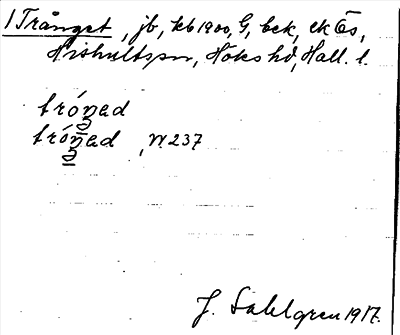 1 Trånget, jb, kb 1900, G, bek, ek Ös,
Hishultspn, Höks hd, Hall. l.
tróŋəd
tróŋəd, N 237
J. Sahlgren 1917.